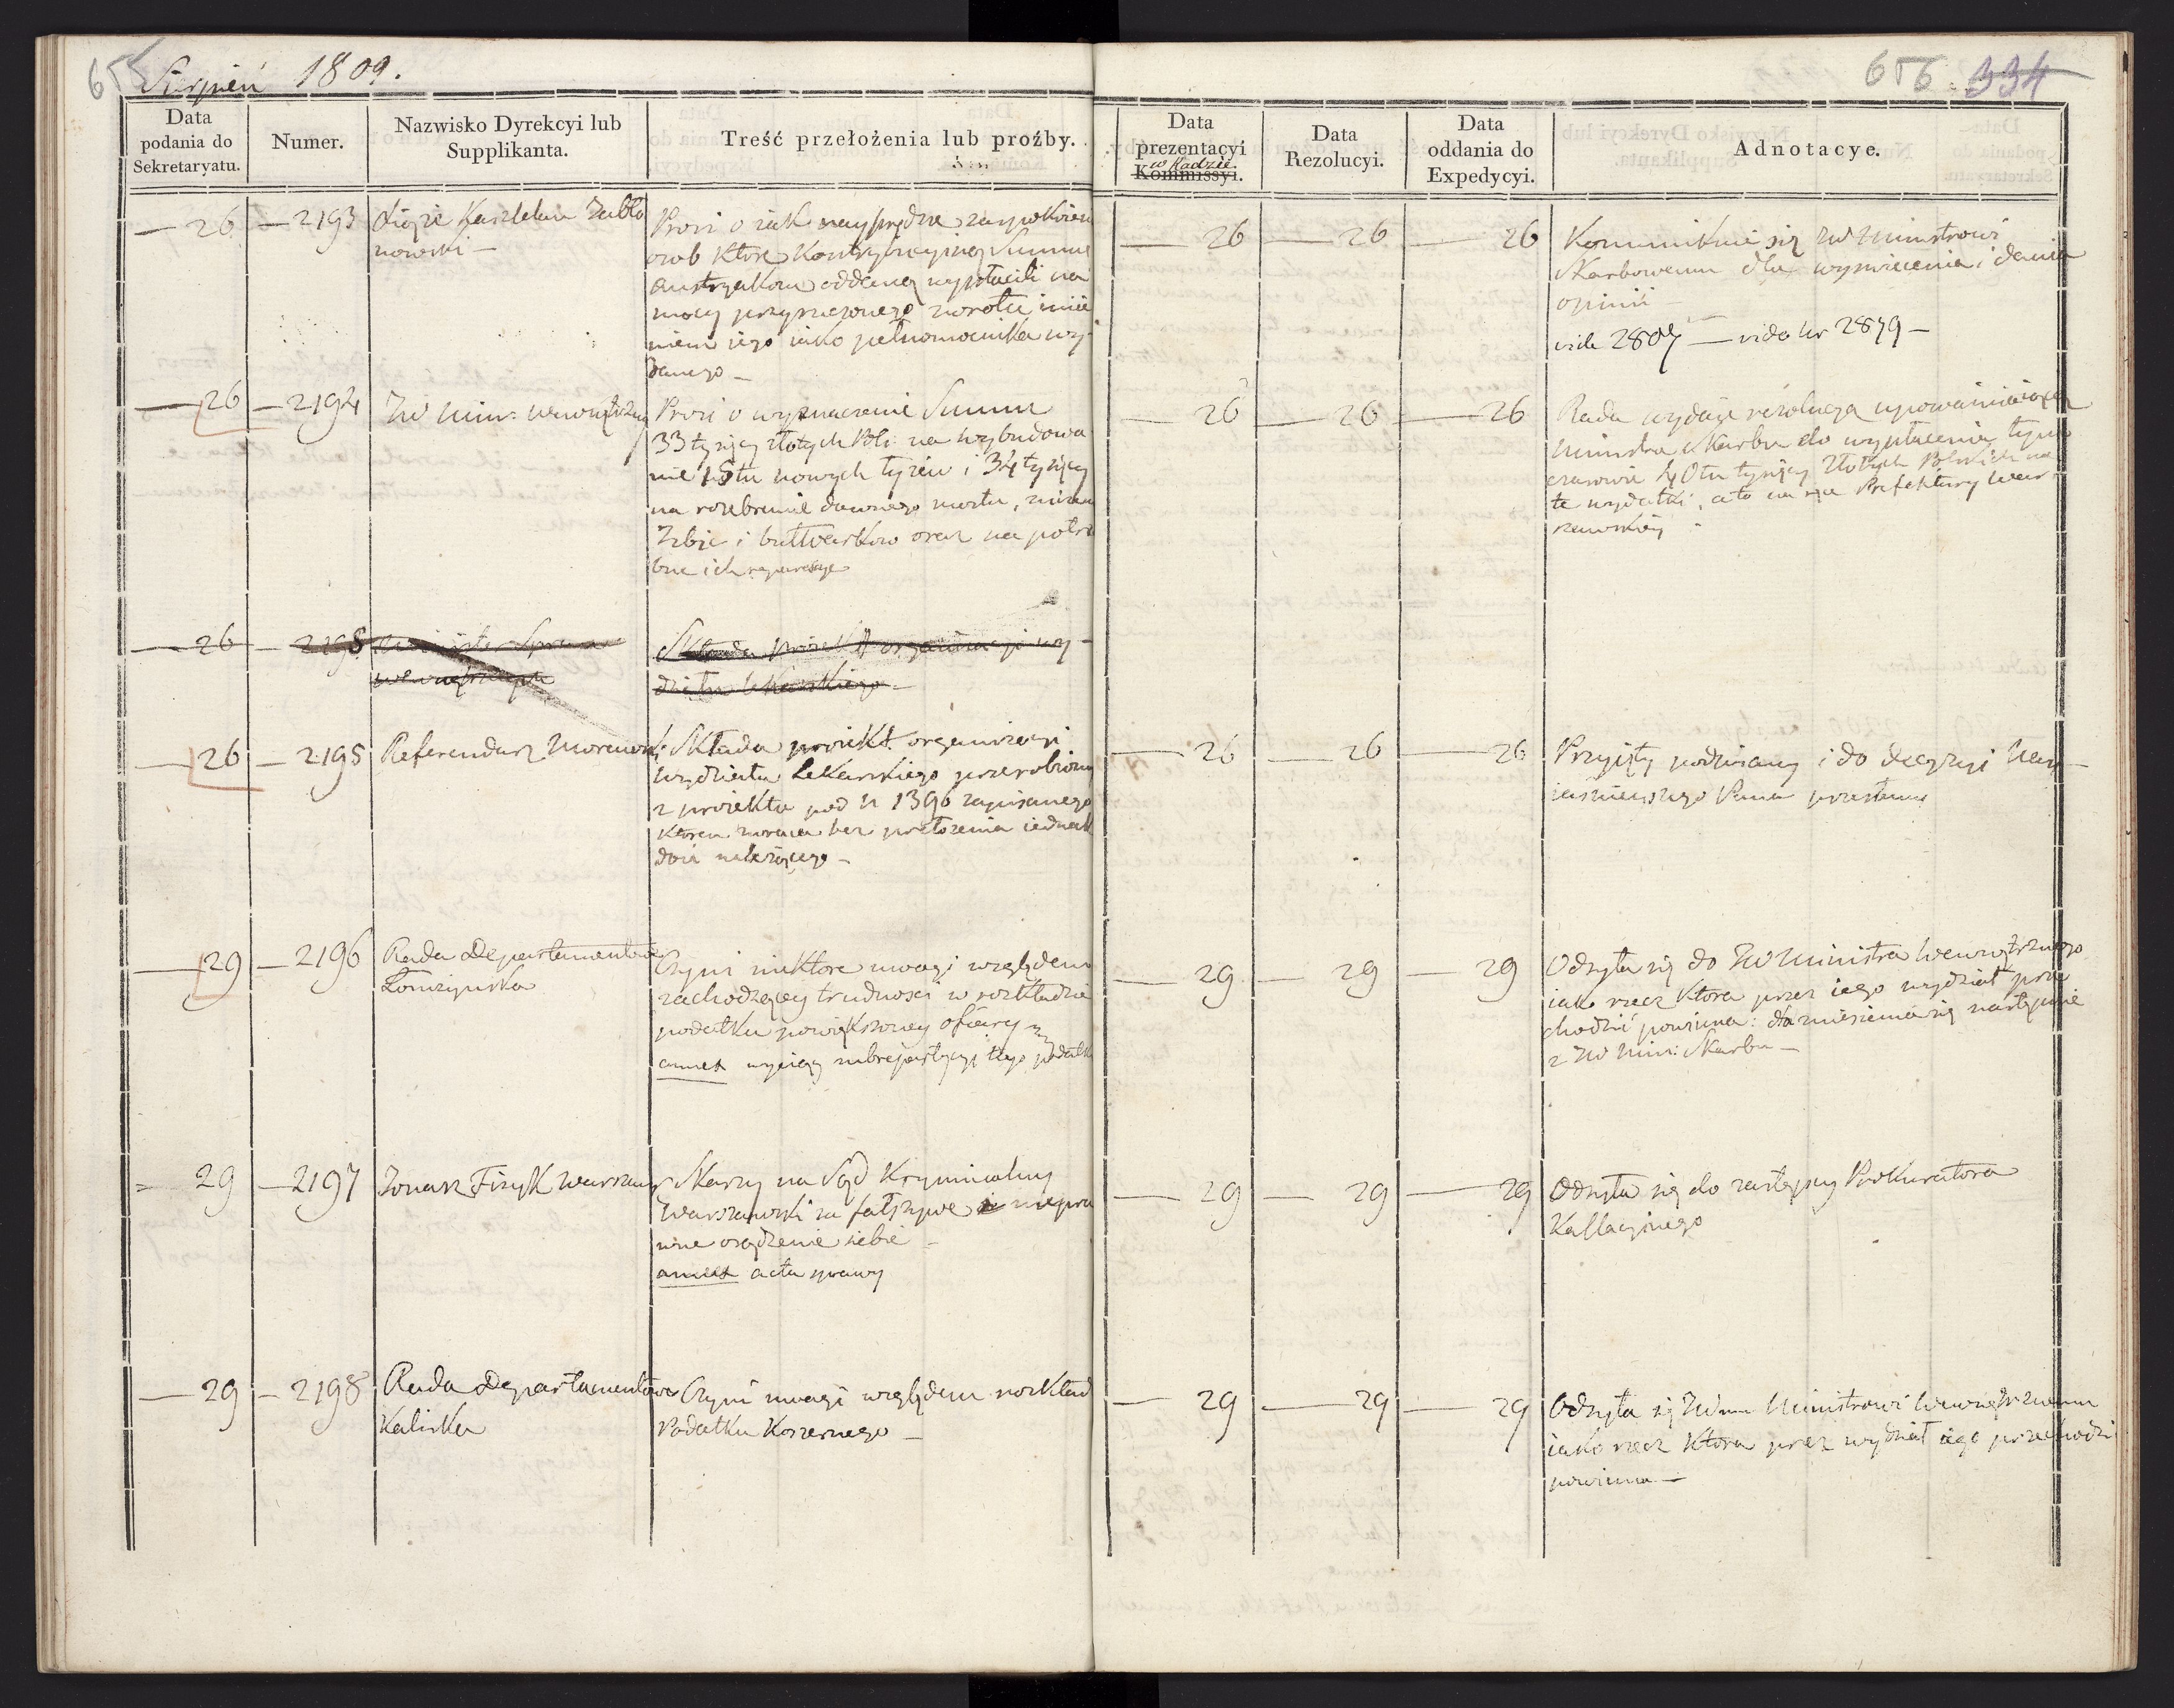 655
Sierpień 1809.
656 334
Data podania do Sekretaryatu.
Numer.
Nazwisko Dyrekcyi lub Supplikanta.
Treść przełożenia lub proźby.
Data prezentacyi w Radzie. Kommissyi.
Data Rezolucyi.
Data oddania do Expedycyi.
Adnotacye.
26 2193 Xiąże Kasztelan Jabło
nowski
Prosi o iak nayprędsze zaspokoien
osob które Kontrybucyiną Summę
Austryakom oddaną wypłacili na
mocy przyrzeczonego zwrotu imie
niem iego iako pełnomocnika wy
danego
26 26 26
Kommunikuie się JW Ministrowi
Skarbowemu dla wyświecenia i dania
opinii
vide 2807 vide Nr 2879
26 2194 JW Min: Wewnętrzny
Prosi o wyznaczenie Summ
33 tysięcy złotych Pol: na wybudowa
nie 15tu nowych łyżew i 34 tysięcy
na rozebranie dawnego mostu,
Izbic i bullwarkow oraz na potrze
bne ich reparacye
26 26 26
Rada wydaie rezolucyą upoważniaiącą
Ministra Skarbu do wypłacenia tym
czasowie 40tu tysięcy Złotych Polskich na
te wydatki, a to na ręce Prefektury War
szawskiey
26 2195 Minister Spraw
wewnętrznych
Składa proiekt organizacyi wy
działu lekarskiego
26 2195 Referendarz Morawski
Składa proiekt organizacyi
wydziału Lekarskiego przerobiony
z proiektu pod N 1396 zapisanego
ktoren zwraca bez przełożenia iednak
doń należącego
26 26 26
Przyięty podpisany i do decyzyi Nay
iaśnieyszego Pana przesłany
29 2196 Rada Departamentowa
Łomżyńska
Czyni niektóre uwagi względem
zachodzącey trudności w rozkładzie
podatku powiększoney ofiary
annex wyciąg subrepartycyi tego podatku
29 29 29
Odsyła się do JW Ministra Wewnętrznego
iako rzecz ktora przez iego wydział prze
chodzić powinna: dla zniesienia się następnie
z JW Min: Skarbu
29 2197 Jonasz Fizyk Warszaw
Skarzy na Sąd Kryminalny
Warszawski za fałszywe i niepra
wne osądzenie siebie
annex acta sprawy
29 29 29
Odsyła się do zastępcy Prokuratora
Kassacyinego
29 2198 Rada Departamentowa
Kaliska
Czyni uwagi względem rozkład
Podatku Koszernego
29 29 29
Odsyła się JWmu Ministrowi Wewnętrznemu
iako rzecz ktora przez wydział iego przechodzi
powinna